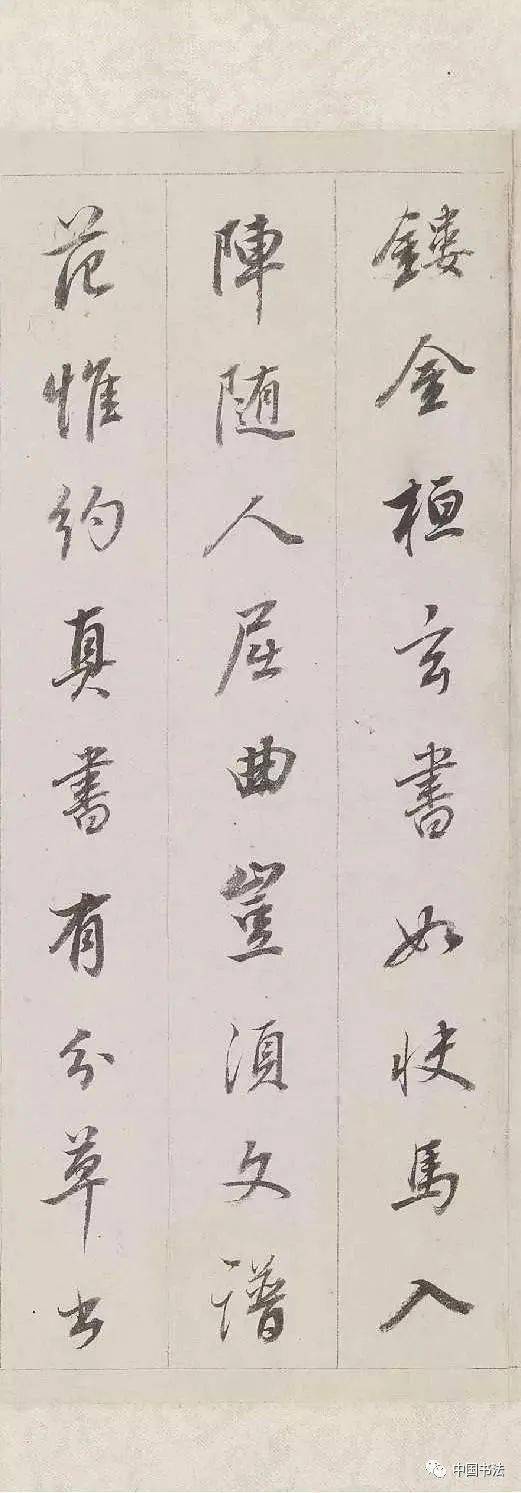 鏤金桓玄書如快馬入
陣随人屈曲豈須文譜
范惟約真書有分草书
中国书法